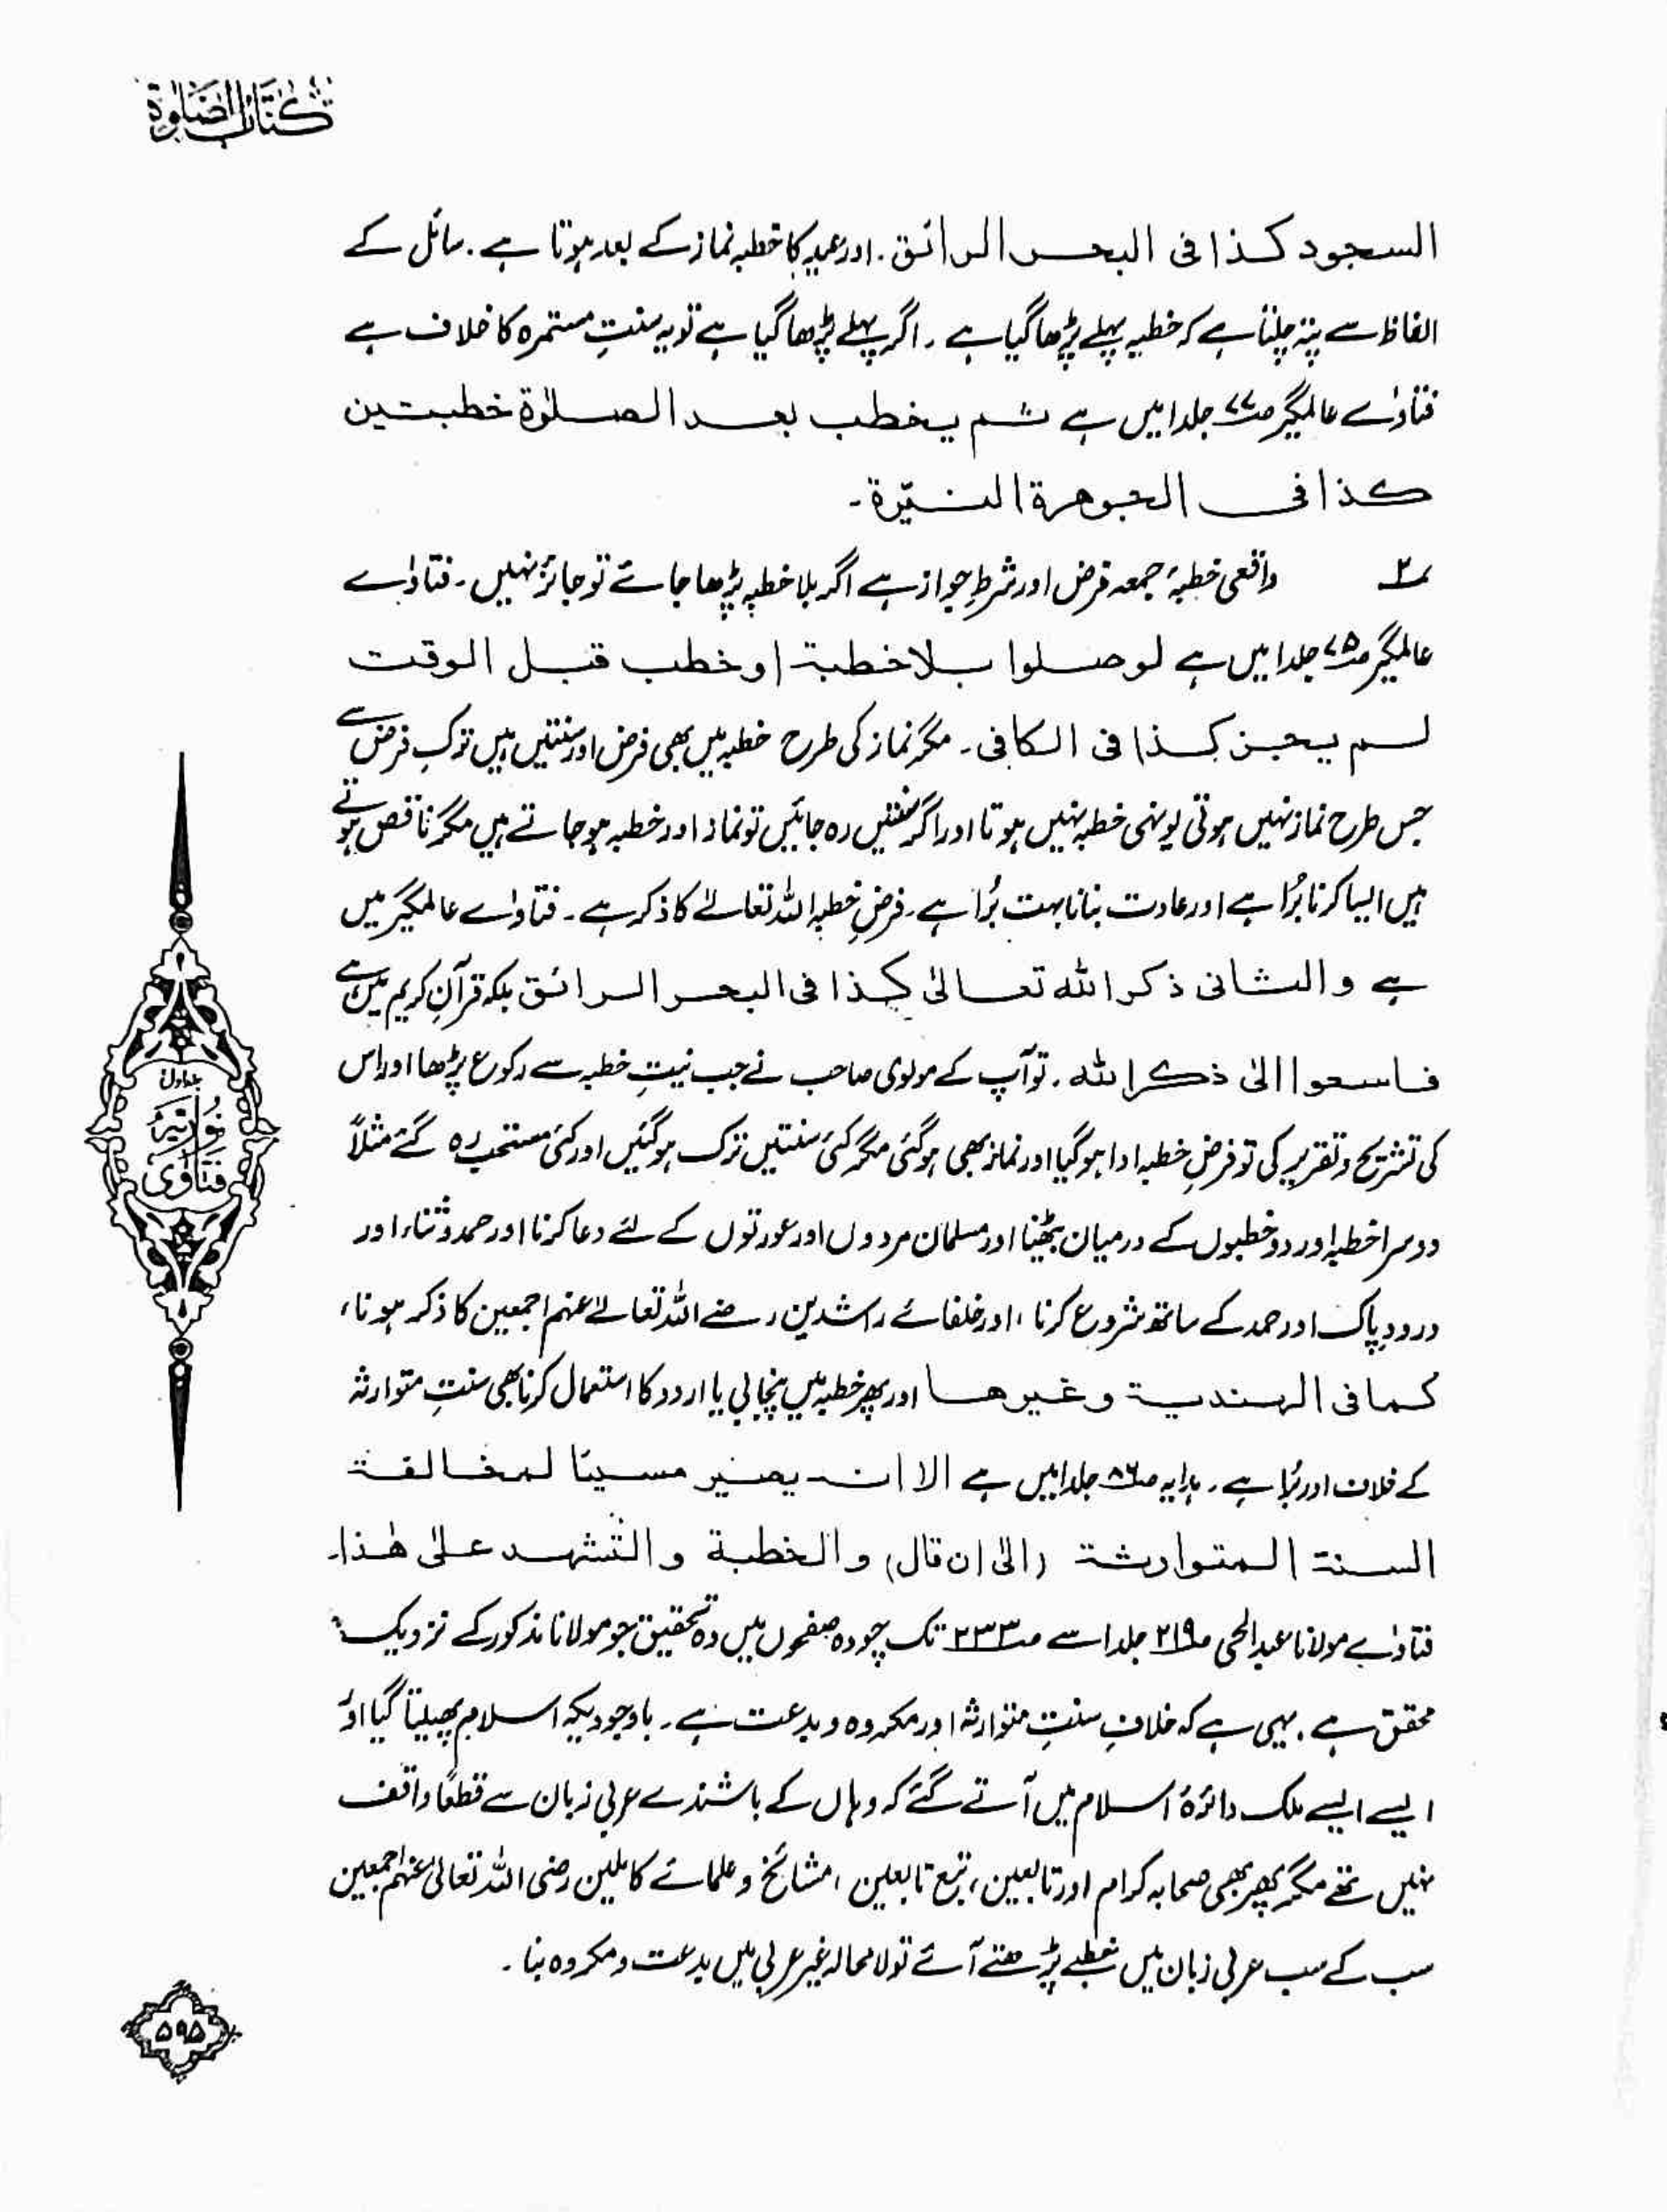 کتاب الصلوٰة
السجود کذا فی البحر الرائق۔ اور عید کا خطبہ نماز کے بعد ہوتا ہے۔ سائل کے
الفاظ سے پتہ چلتا ہے کہ خطبہ پہلے پڑھا گیا ہے۔ اگر پہلے پڑھا گیا ہے تو یہ سنتِ مستمرہ کا خلاف ہے
فتاوٰے عالمگیر ص۷۷ جلد ۱ میں ہے ثم یخطب بعد الصلوٰة خطبتین
کذا فی الجوھرة النیّرة۔
۲ واقعی خطبۂ جمعہ فرض اور شرطِ جواز ہے اگر بلا خطبہ پڑھا جائے تو جائز نہیں۔ فتاوٰے
عالمگیر ص۷۵ جلد ۱ میں ہے لو صلوا بلا خطبة او خطب قبل الوقت
لم یجز کذا فی الکافی۔ مگر نماز کی طرح خطبہ میں بھی فرض اور سنتیں ہیں ترکِ فرض سے
جس طرح نماز نہیں ہوتی یونہی خطبہ نہیں ہوتا اور اگر سنتیں رہ جائیں تو نماز اور خطبہ ہو جاتے ہیں مگر ناقص ہوتے
ہیں ایسا کرنا بُرا ہے اور عادت بنانا بہت بُرا ہے۔ فرضِ خطبہ اللہ تعالےٰ کا ذکر ہے۔ فتاوٰے عالمگیر میں
ہے والثانی ذکر اللہ تعالیٰ کذا فی البحر الرائق بلکہ قرآنِ کریم میں ہے
فاسعوا الیٰ ذکر اللہ۔ تو آپ کے مولوی صاحب نے جب نیتِ خطبہ سے رکوع پڑھا اور اس
کی تشریح و تقریر کی تو فرضِ خطبہ ادا ہوگیا اور نماز بھی ہوگئی مگر کئی سنتیں ترک ہوگئیں اور کئی مستحب رہ گئے مثلاً
دوسرا خطبہ اور دو خطبوں کے درمیان بیٹھنا اور مسلمان مردوں اور عورتوں کے لئے دعا کرنا اور حمد و ثناء اور
درودِ پاک اور حمد کے ساتھ شروع کرنا، اور خلفائے راشدین رضے اللہ تعالےٰ عنہم اجمعین کا ذکر ہونا،
کما فی الہندیة وغیرھا اور پھر خطبہ میں پنجابی یا اردو کا استعمال کرنا بھی سنتِ متوارثہ
کے خلاف اور بُرا ہے۔ ہدایہ ص۸۶ جلد ۱ میں ہے الا ان یصیر مسیئا لمخالفة
السنة المتوارثة (الیٰ ان قال) والخطبة والتّشہد علیٰ ھٰذا۔
فتاوٰے مولانا عبدالحی ص۲۱۹ جلد ۱ سے ص۲۳۳ تک چودہ صفحوں میں وہ تحقیق جو مولانا مذکور کے نزدیک
محقق ہے۔ یہی ہے کہ خلافِ سنتِ متوارثہ اور مکروہ و بدعت ہے۔ باوجودیکہ اسلام پھیلتا گیا اور
ایسے ایسے ملک دائرۂ اسلام میں آتے گئے کہ وہاں کے باشندے عربی زبان سے قطعًا واقف
نہیں تھے مگر پھر بھی صحابہ کرام اور تابعین، تبع تابعین، مشائخ و علمائے کاملین رضی اللہ تعالیٰ عنہم اجمعین
سب کے سب عربی زبان میں خطبے پڑھتے آئے تو لامحالہ غیر عربی میں بدعت و مکروہ بنا۔
جلد اول
نوریہ
فتاوٰی
۵۹۵